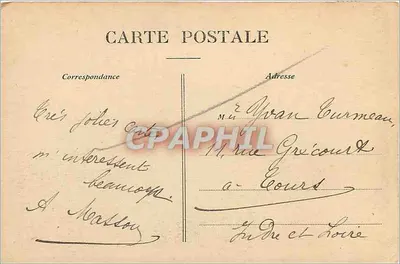 CARTE POSTALE
Correspondance
Adresse
Très jolies cartes
m'intéressent
beaucoup.
A. Masson
Mr Yvan Turmeau,
11, rue Grécourt
a- Tours
Indre et Loire
CPAPHIL
.com